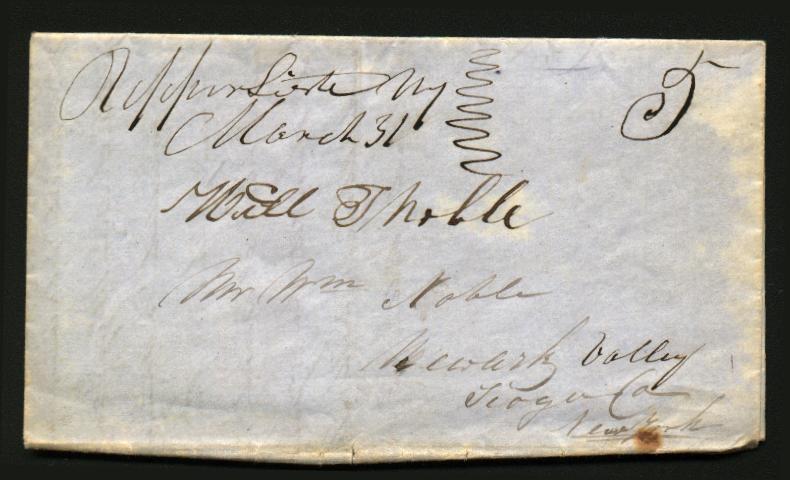 Ripper Siote Ny 5
March 31
Will T Noble
Mr Wm Noble
Newark Valley
Tioga Co
New York